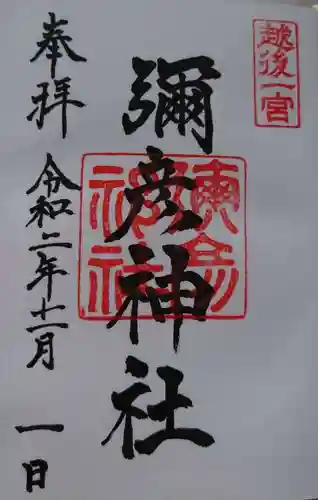 越後一宮
彌彦神社
奉拝
令和二年十一月一日